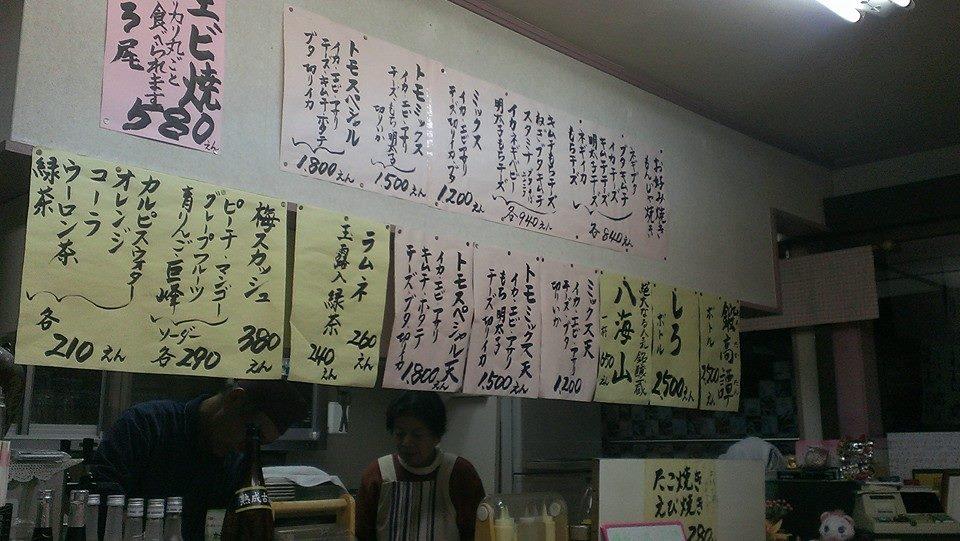 エビ焼
カリ丸ごと
食べられます
3尾
580えん
お好み焼き
もんじゃ焼き
ブタキムチ
イカチーズ
明太チーズ
ネギイカ
もちチーズ
各840えん
キムチもちチーズ
ねぎブタキムチ
スタミナ
イカネギベビー
明太子もちチーズ
各940えん
ミックス
イカ・エビ・アサリ
1200えん
トモミックス
イカ・エビ・アサリ
チーズ・もち・明太子
切りいか
1500えん
トモスペシャル
イカ・エビ・アサリ
チーズ・キムチ・ホタテ
ブタ・切りイカ
1,800えん
梅スカッシュ
380えん
ピーチ・マンゴー
グレープフルーツ
青りんご・巨峰
ソーダー
各290えん
カルピスウォーター
オレンジ
コーラ
ウーロン茶
緑茶
各
210えん
ラムネ
260えん
玉露入緑茶
240えん
トモスペシャル天
イカ・エビ・アサリ
キムチ・ホタテ
チーズ・ブタ・切イカ
1,800えん
トモミックス天
イカ・エビ・アサリ
もち・明太子
チーズ
1,500えん
ミックス天
イカ・エビ・アサリ
チーズ・ブタ
1,200
八海山
一杯
650えん
しろ
ボトル
2500えん
鍛高譚
ボトル
2500えん
たこ焼き
えび焼き
280
熟成古